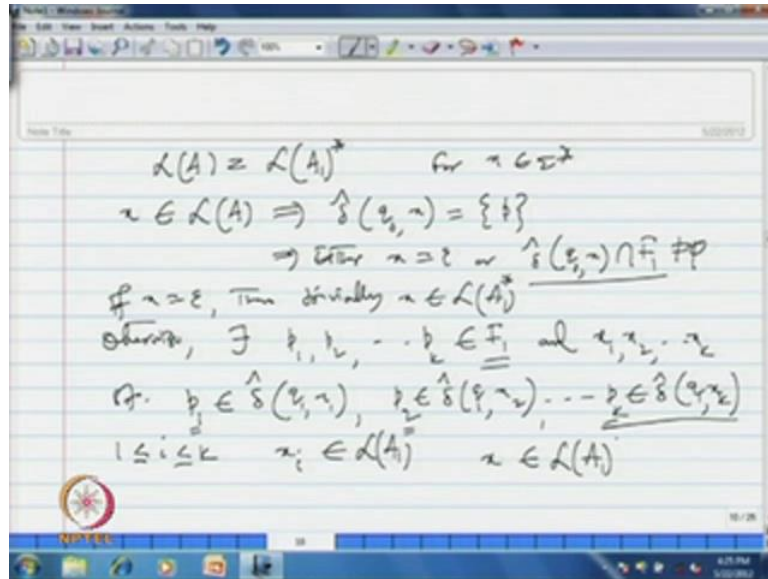 Note1 - Windows Journal
File Edit View Insert Actions Tools Help
Note Title
5/22/2012
L(A) = L(A₁)* For x ∈ Σ*
x ∈ L(A) ⇒ δ̂(q₀, x) = {p}
⇒ Either x = ε or δ̂(q₀, x) ∩ F₁ ≠ φ
If x = ε, Then trivially x ∈ L(A₁)*
otherwise, ∃ p₁, p₂, ... p_k ∈ F₁ and x₁, x₂, ... x_k
st. p₁ ∈ δ̂(q₁, x₁), p₂ ∈ δ̂(q₁, x₂), ... p_k ∈ δ̂(q₁, x_k)
1 ≤ i ≤ k x_i ∈ L(A₁) x ∈ L(A₁)
NPTEL
10/26
4:25 PM
5/22/2012